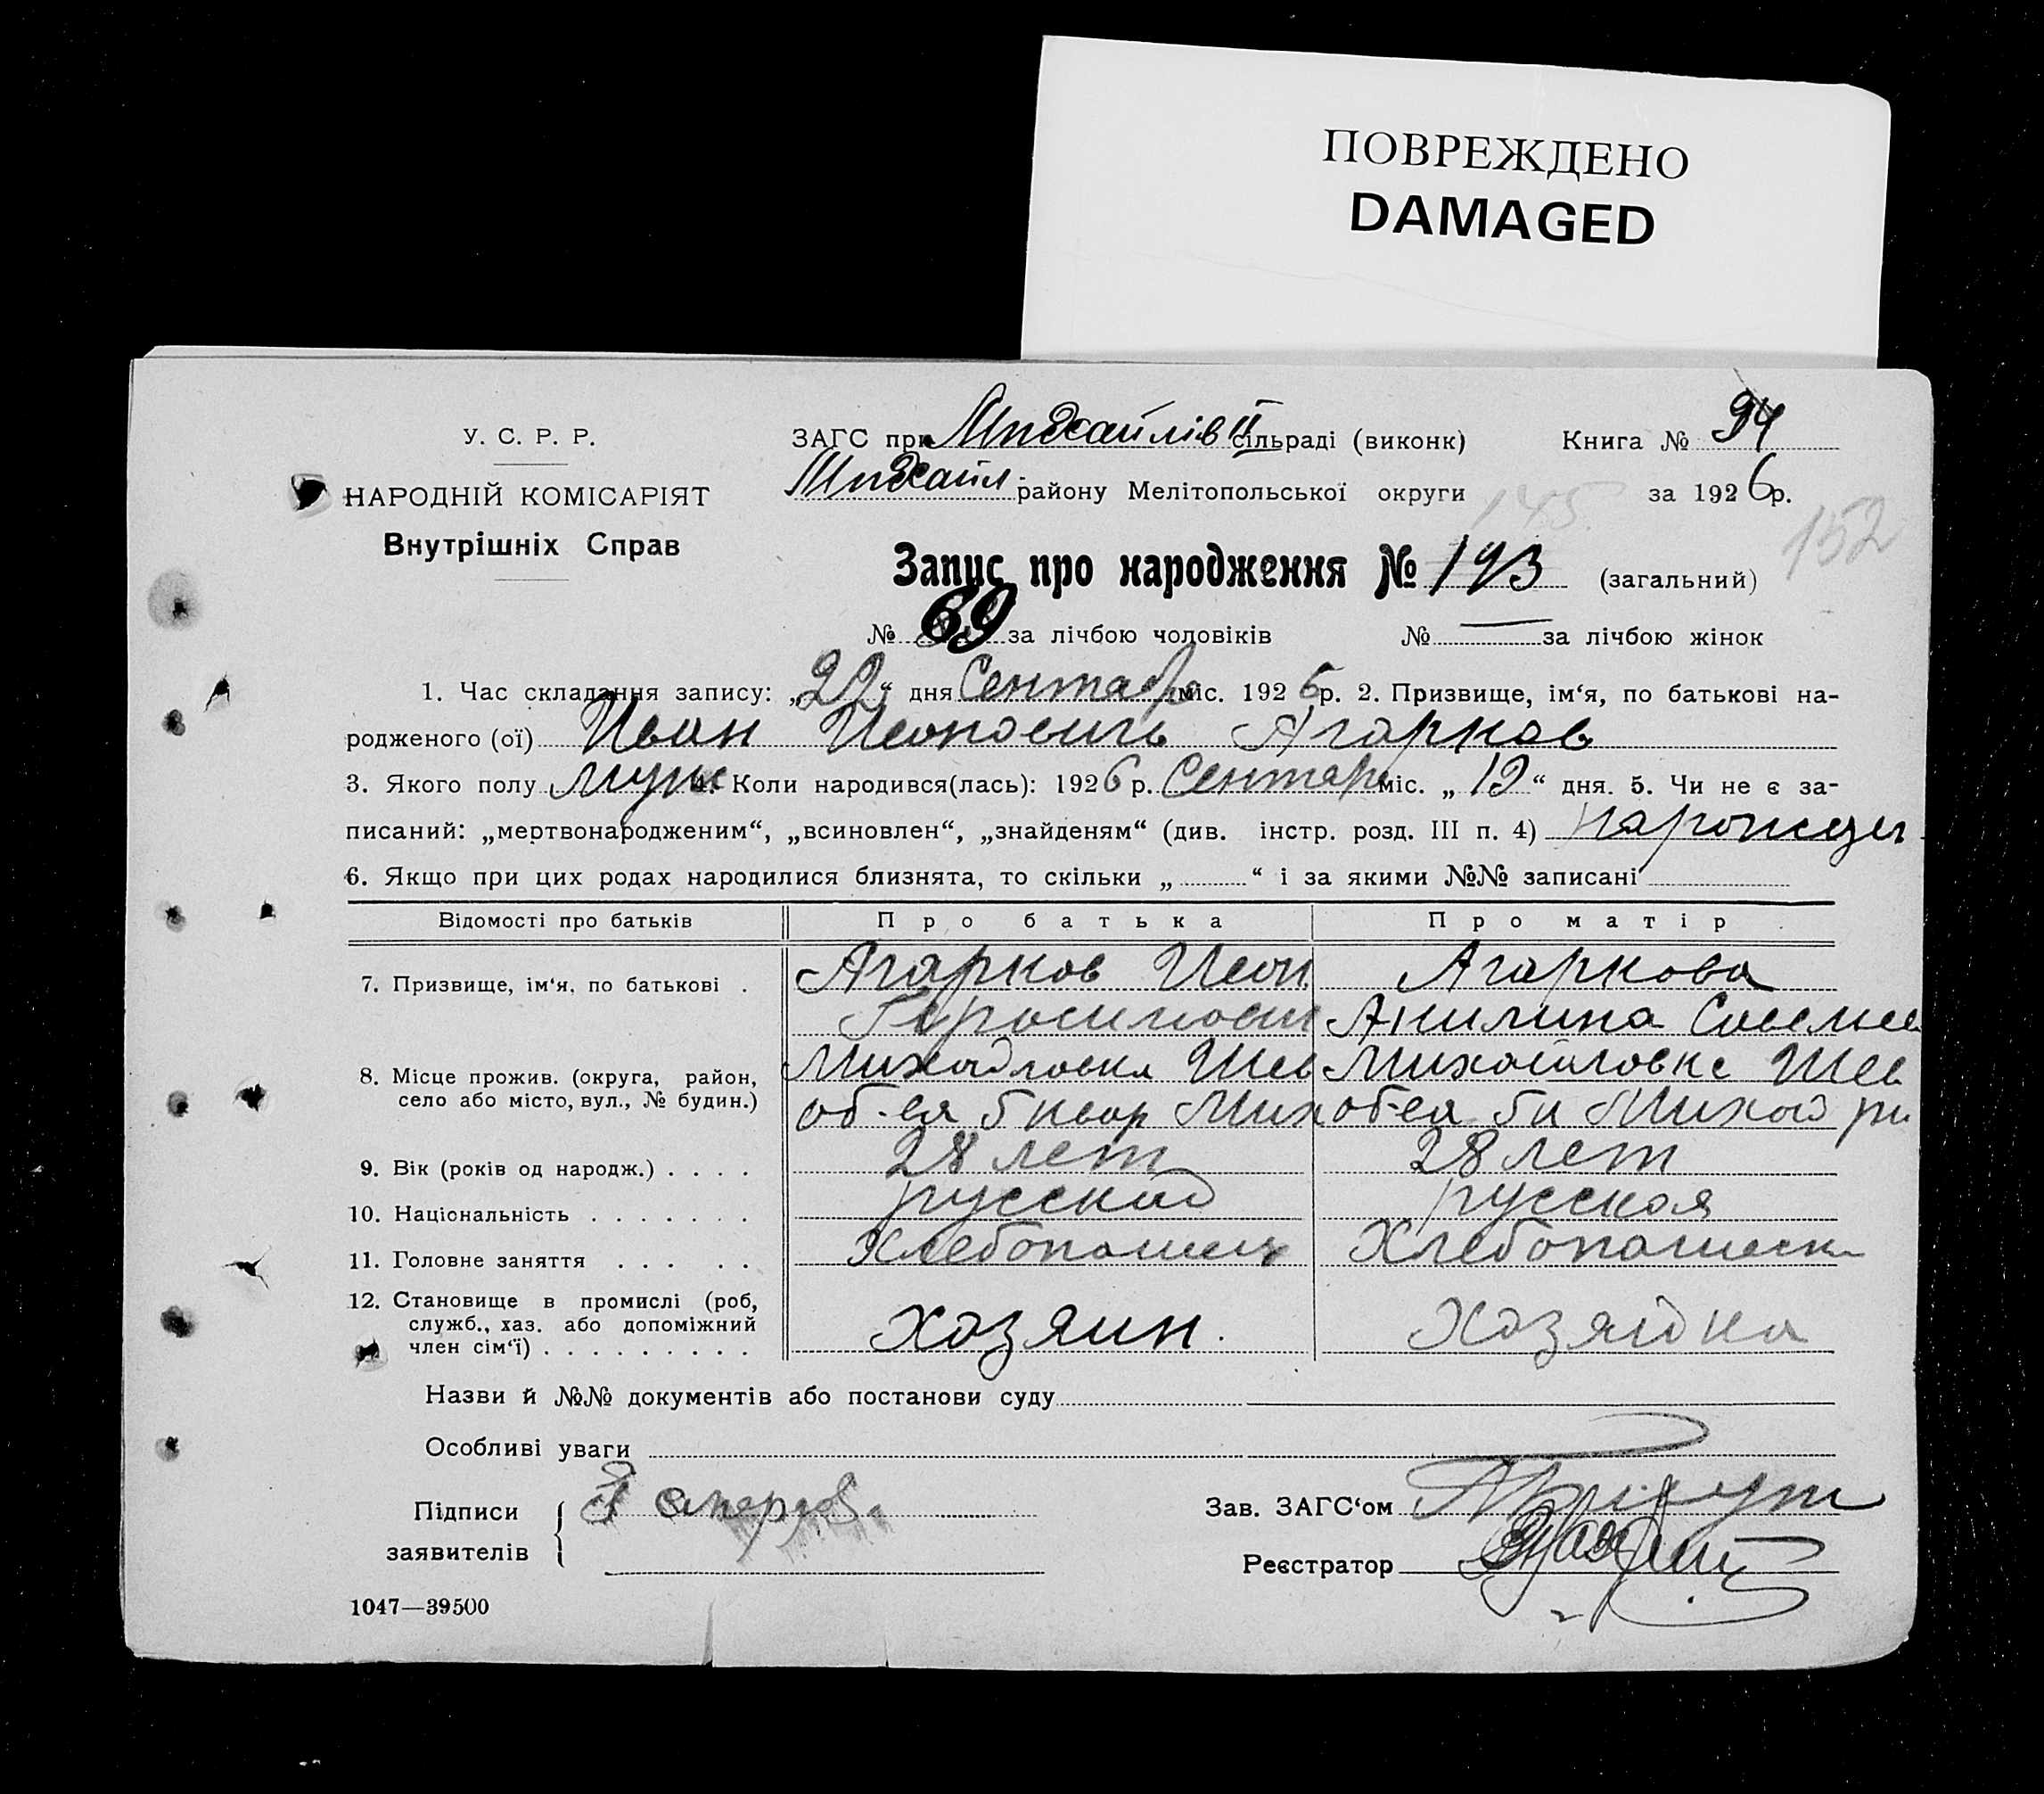 ПОВРЕЖДЕНО
DAMAGED
У. С. Р. Р.
НАРОДНІЙ КОМІСАРІЯТ
Внутрішніх Справ
ЗАГС при Михайлів II сільраді (виконк) Книга № 94
Михайл. району Мелітопольської округи за 1926 р.
145
152
Запис про народження № 193 (загальний)
№ 69 за лічбою чоловіків № — за лічбою жінок
1. Час складання запису: „22“ дня Сентабр міс. 1926 р. 2. Призвище, ім‘я, по батькові на-
родженого (ої) Иван Агарков
3. Якого полу муж 4. Коли народився(лась): 1926 р. Сентяр міс. „12“ дня. 5. Чи не є за-
писаний: „мертвонародженим“, „всиновлен“, „знайденям“ (див. інстр. розд. III п. 4)
6. Якщо при цих родах народилися близнята, то скільки „ “ і за якими №№ записані
Відомості про батьків Про батька Про матір
7. Призвище, ім‘я, по батькові . Агарков Агаркова
Акилина
8. Місце прожив. (округа, район, Михайловка Шев Михайловке Шев
село або місто, вул., № будин.) об-ея 5 Мих об-ея 5
9. Вік (років од народж.) . . . . 28 лет 28 лет
10. Національність . . . . . . . русский русская
11. Головне заняття . . . . . Хлебопашец Хлебопашеск
12. Становище в промислі (роб,
служб., хаз. або допоміжний хозяин. хозяйка
член сім‘ї) . . . . . . . . .
Назви й №№ документів або постанови суду
Особливі уваги
Підписи
заявителів
Зав. ЗАГС‘ом
Реєстратор
1047—39500